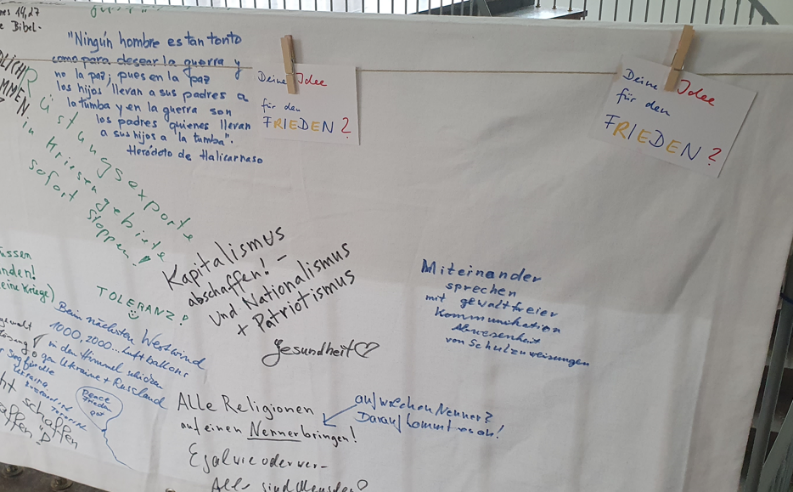 "Ningún hombre es tan tonto
como para desear la guerra y
no la paz; pues en la paz
los hijos llevan a sus padres a
la tumba y en la guerra son
los padres quienes llevan
a sus hijos a la tumba".
Heródoto de Halicarnaso
Deine Idee
für den
FRIEDEN?
Deine Idee
für den
FRIEDEN?
Rüstungsexporte
in Krisengebiete
sofort
stoppen!
Kapitalismus
abschaffen! -
und Nationalismus
+ Patriotismus
Gesundheit♡
Miteinander
sprechen
mit gewaltfreier
Kommunikation
Abwesenheit
von Schulzuweisungen
TOLERANZ!
Beim nächsten Westwind
1000, 2000... Luftballons
in den Himmel schicken
gen Ukraine + Russland
Alle Religionen
auf einen Nenner bringen!
auf welchen Nenner?
Darauf kommt es an!
Egal wie oder wer-
Alle sind Menschen♡